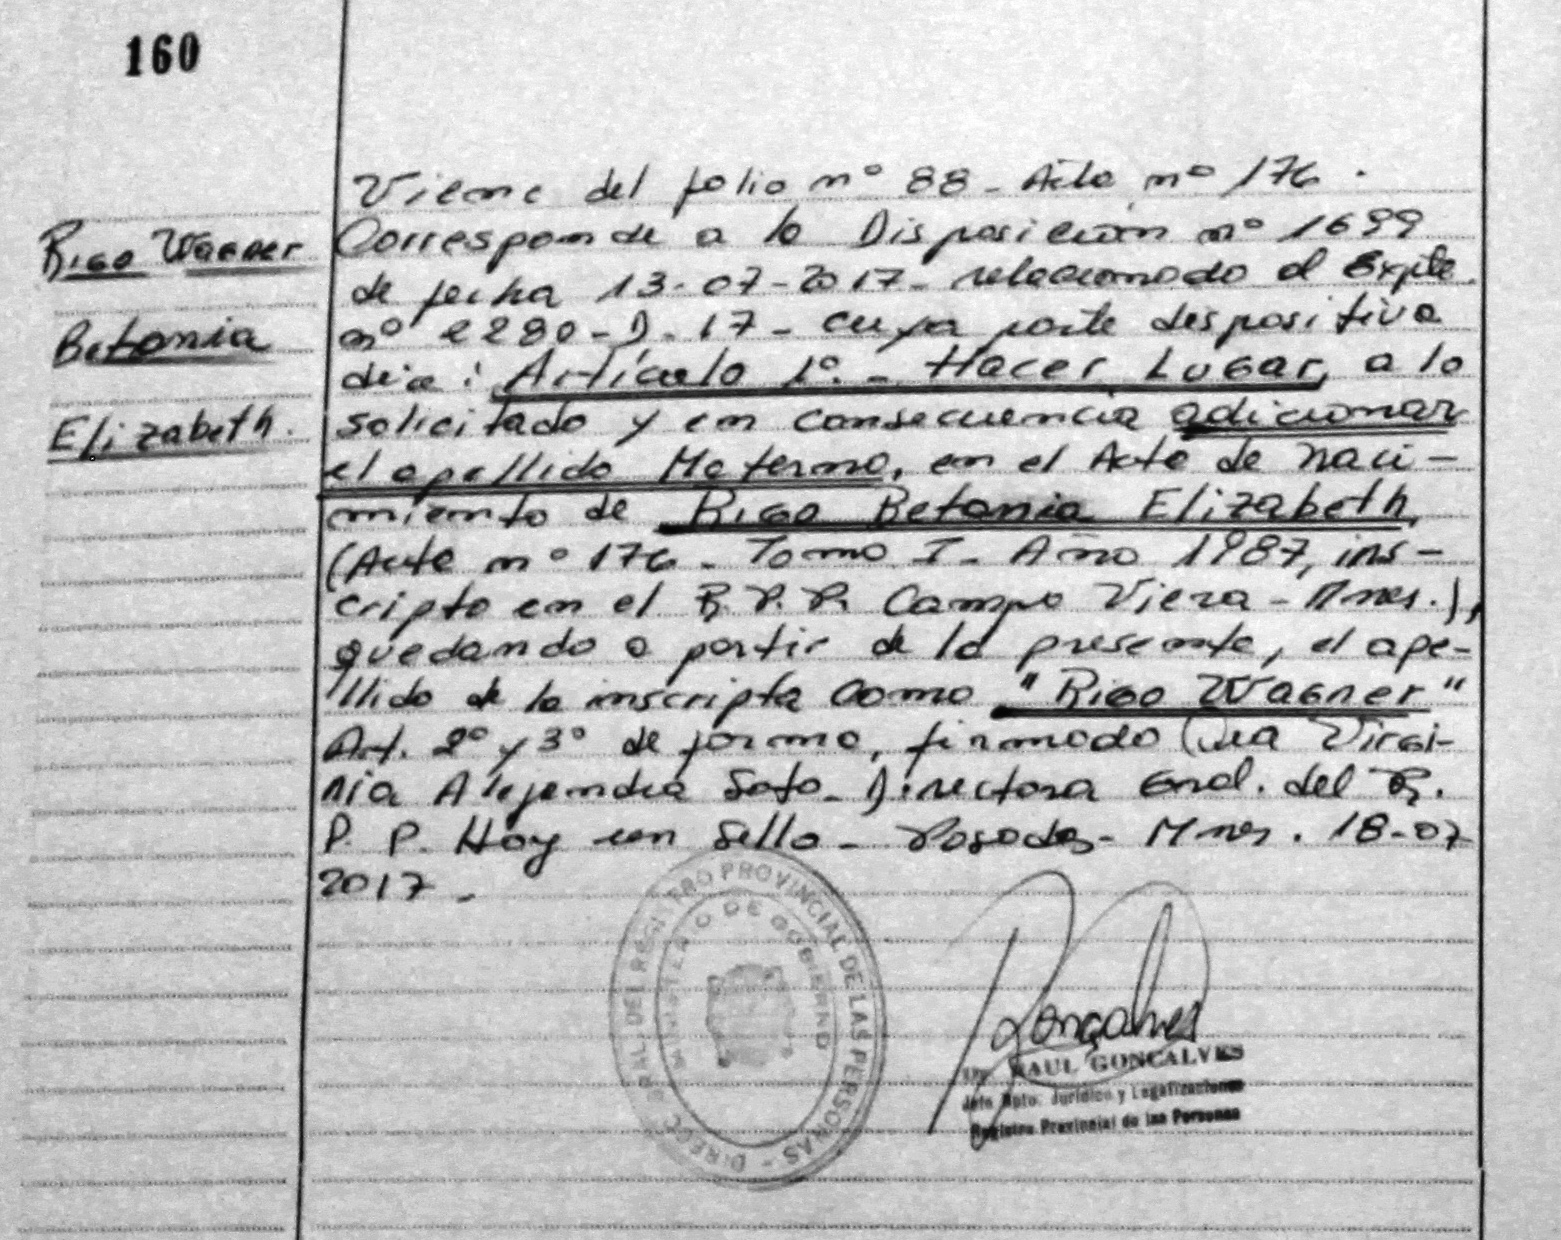 160
Rigo Wagner
Betania
Elizabeth.
Viene del folio nº 88 - Acta nº 176.
Corresponde a la Disposición nº 1699
de fecha 13-07-2017 - relacionado al Expte.
nº 2280-D-17 - cuya parte dispositiva
dice: Artículo 1º. - Hacer Lugar, a lo
solicitado y en consecuencia adicionar
el apellido Materno, en el Acta de naci-
miento de Rigo Betania Elizabeth,
(Acta nº 176 - Tomo I - Año 1987, ins-
cripta en el R.P.P. Campo Viera - Mnes.),
quedando a partir de la presente, el ape-
llido de la inscripta como "Rigo Wagner"
Art. 2º y 3º de forma, firmado Dra Virgi-
nia Alejandra Soto - Directora Gral. del R.
P. P. Hay un Sello - Posadas - Mnes. 18-07
2017 -
DIRECC. GRAL. DEL REGISTRO PROVINCIAL DE LAS PERSONAS -
MINISTERIO DE GOBIERNO
Gonçalves
Dr. RAUL GONCALVES
Jefe Dpto. Jurídico y Legalizaciones
Registro Provincial de las Personas